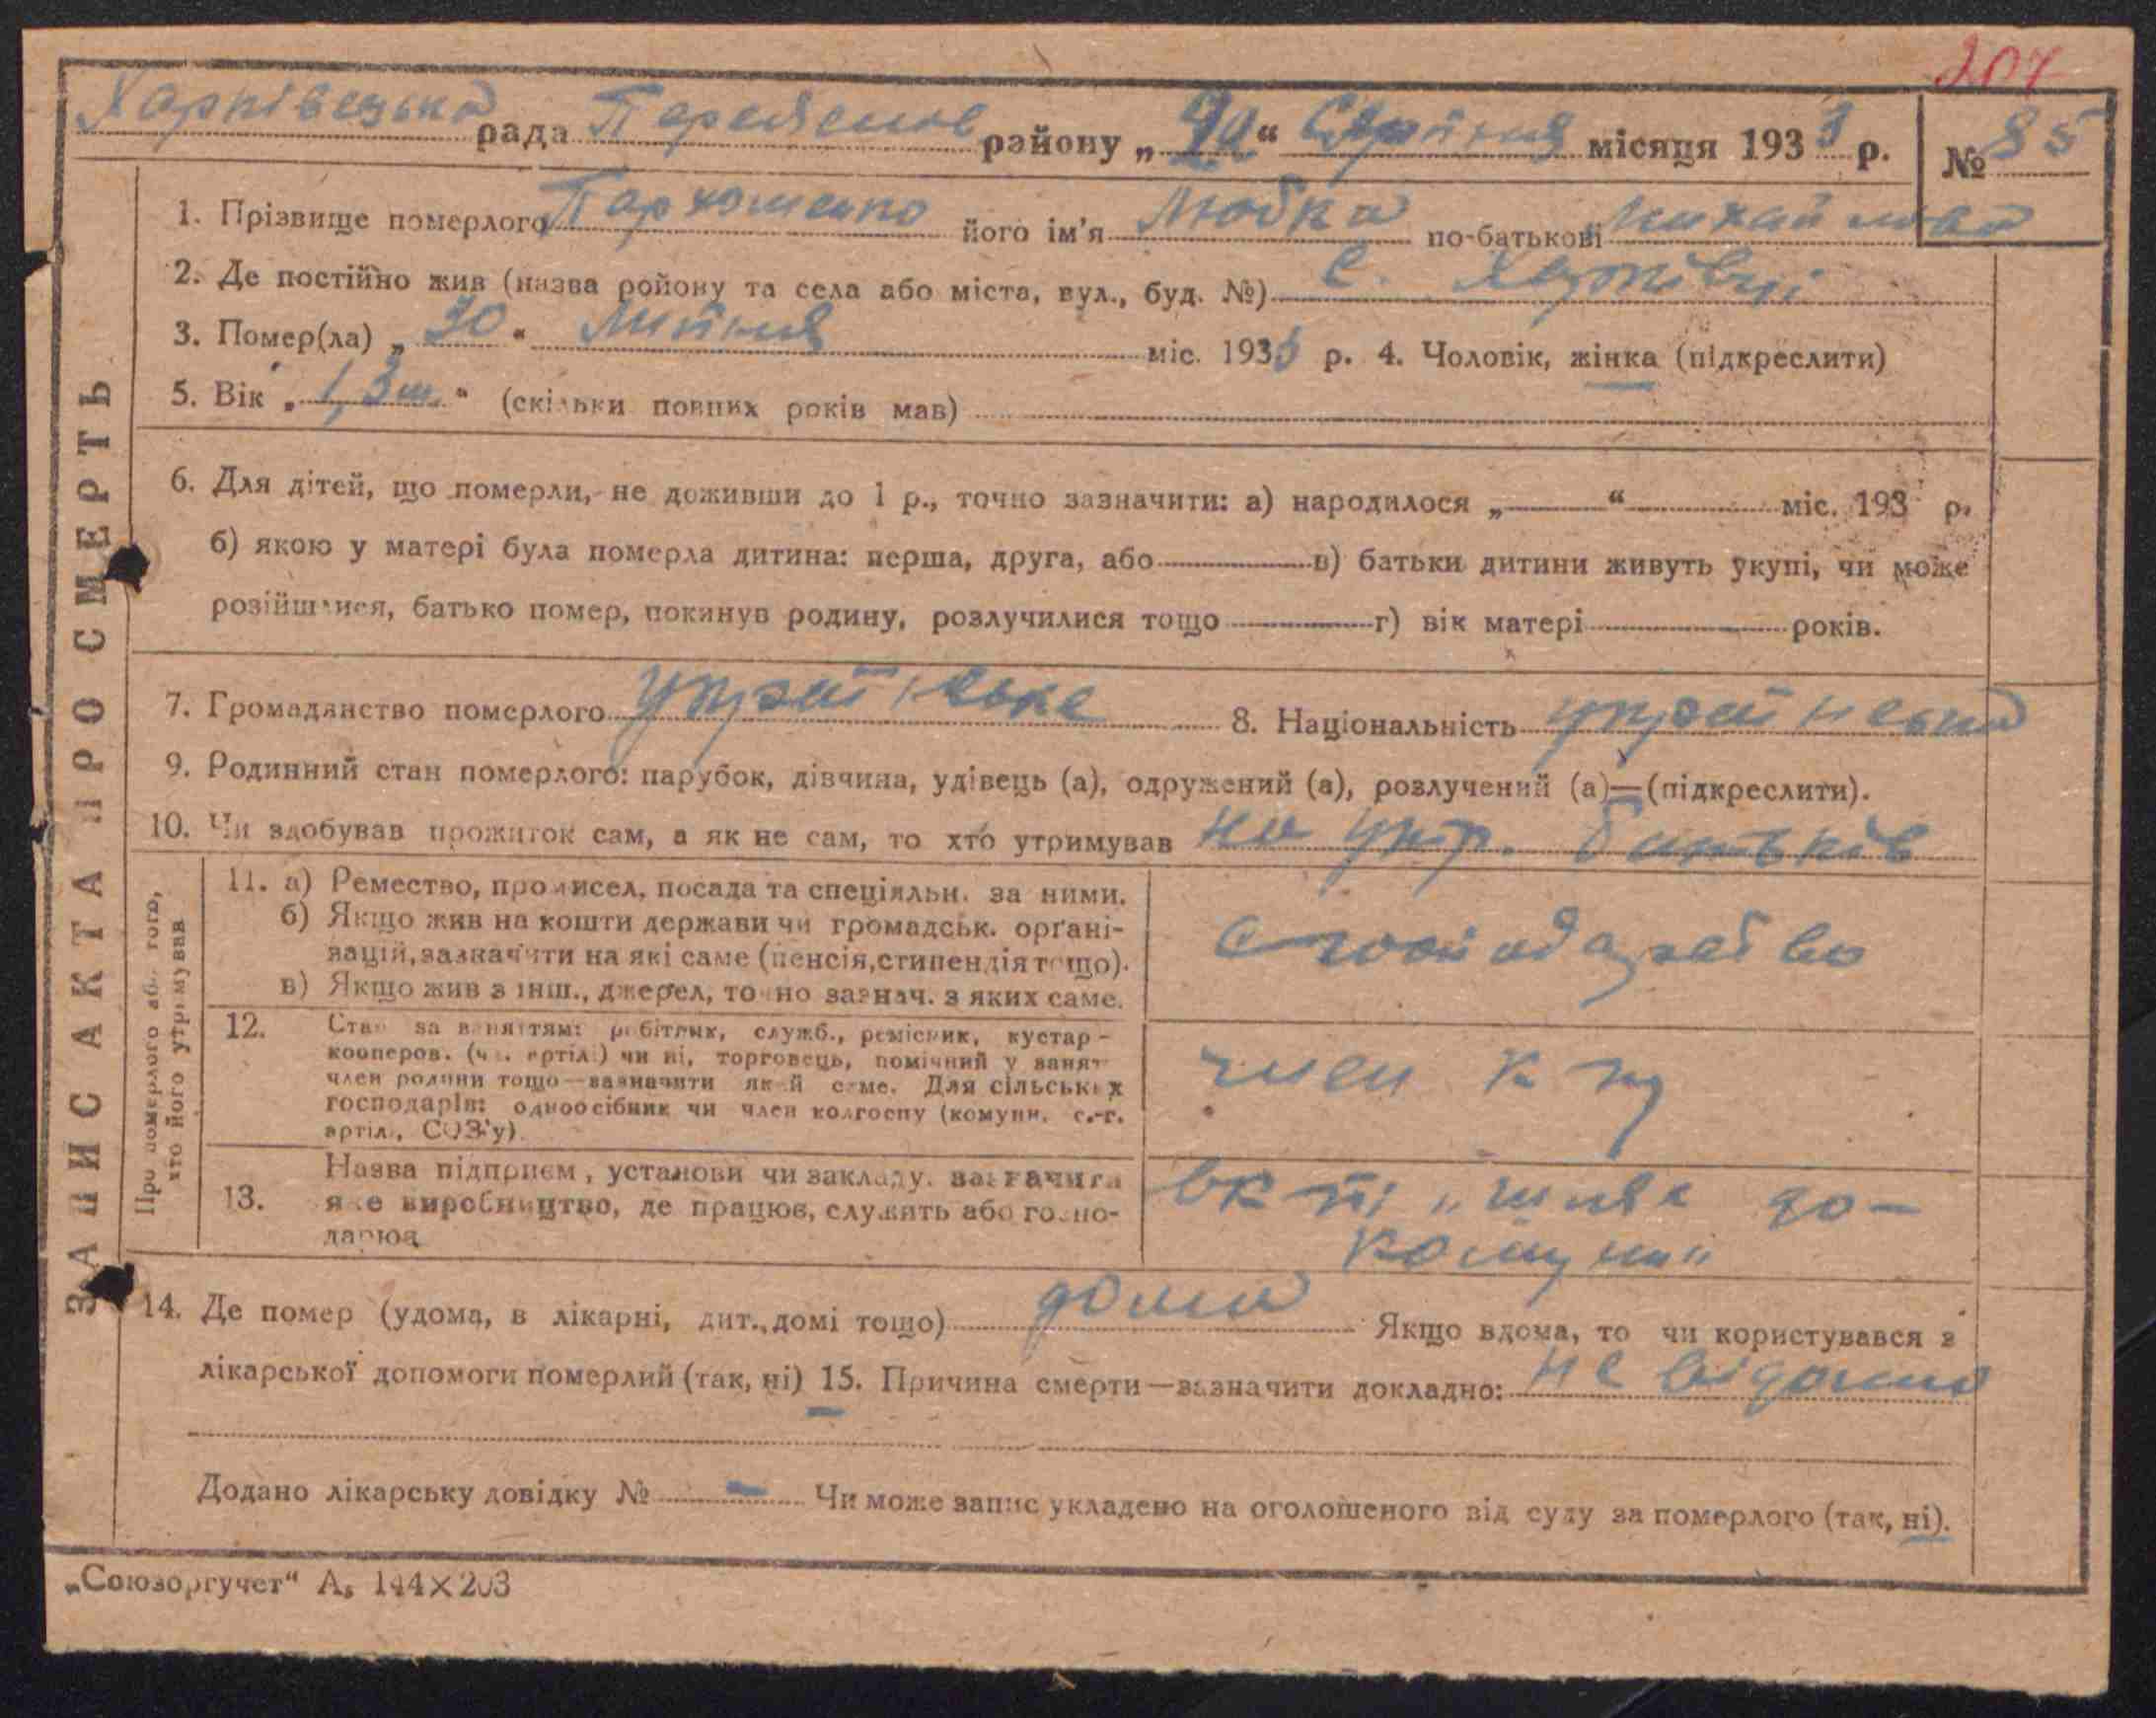 207
Харківецька рада Переяслов району „ “ Серпня місяця 1933 р. № 85
1. Прізвище померлого Пархоменко його ім'я Любка по-батькові Михайловна
2. Де постійно жив (назва ройону та села або міста, вул., буд. №) с. Харківці
3. Помер(ла) „30“ Липня міс. 1933 р. 4. Чоловік, жінка (підкреслити)
5. Вік „1,3 “ (скільки повних років мав)
6. Для дітей, що померли, не доживши до 1 р., точно зазначити: а) народилося „ “ міс. 193 р.
б) якою у матері була померла дитина: перша, друга, або в) батьки дитини живуть укупі, чи може
розійшлися, батько помер, покинув родину, розлучилися тощо г) вік матері років.
7. Громадянство померлого українське 8. Національність українська
9. Родинний стан померлого: парубок, дівчина, удівець (а), одружений (а), розлучений (а)—(підкреслити).
10. Чи здобував прожиток сам, а як не сам, то хто утримував на утр. батьків
11. а) Ремество, промисел, посада та спеціяльн. за ними.
б) Якщо жив на кошти держави чи громадськ. орґані-
зацій, зазначити на які саме (пенсія, стипендія тощо).
в) Якщо жив з інш., джерел, точно зазнач. з яких саме.
с господарство
12. Стан за заняттям: робітник, служб., ремісник, кустар -
кооперов. (чл. артілі) чи ні, торговець, помічний у занят
член родини тощо—зазначити який саме. Для сільських
господарів: одноосібник чи член колгоспу (комуни, с.-г.
артіл., СОЗ'у).
член к гу
13. Назва підприєм, установи чи закладу, зазначити
яке виробництво, де працює, служить або госпо-
дарює
в к-пі „Шлях до-
комуни“
Про померлого або того,
хто його утримував
14. Де помер (удома, в лікарні, дит., домі тощо) дома Якщо вдома, то чи користувався з
лікарської допомоги померлий (так, ні) 15. Причина смерти—зазначити докладно: не відомо
Додано лікарську довідку № - Чи може запис укладено на оголошеного від суду за померлого (так, ні).
ЗАПИС АКТА ПРО СМЕРТЬ
„Союзоргучет“ А₅ 144×203